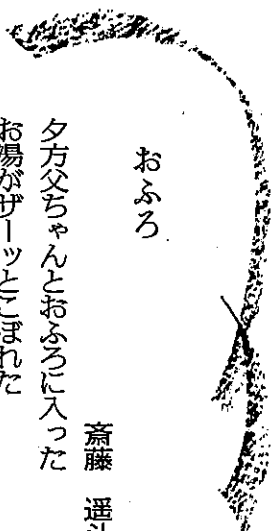 おふろ
斎藤 遥斗
夕方父ちゃんとおふろに入った
お湯がザーッとこぼれた